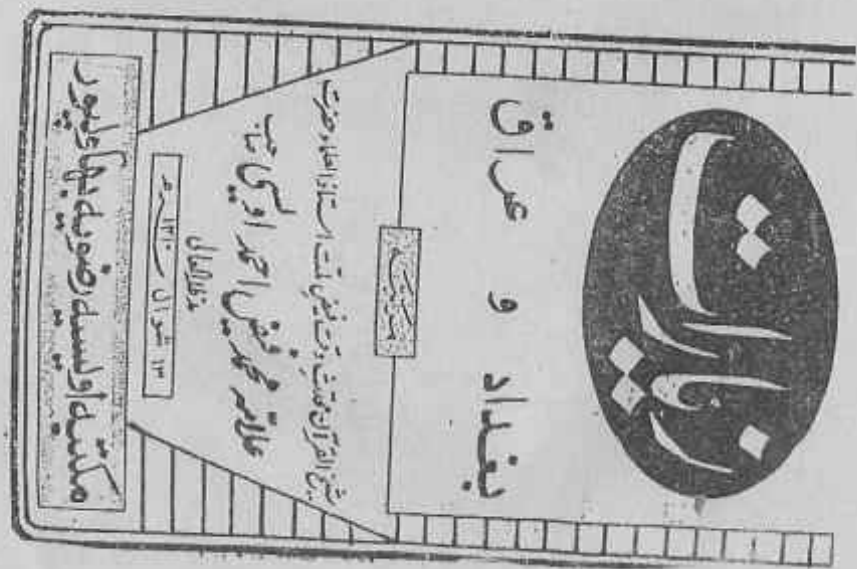 زیارات
بغداد و عراق
شیخ القرآن محدثِ وقت فیضِ ملت استاذ العلماء حضرت
علامہ محمد فیض احمد اویسی صاحب
مدظلہ العالی
۱۳ شوال ۱۴۱۰ھ
مکتبہ اویسیہ رضویہ بہاولپور